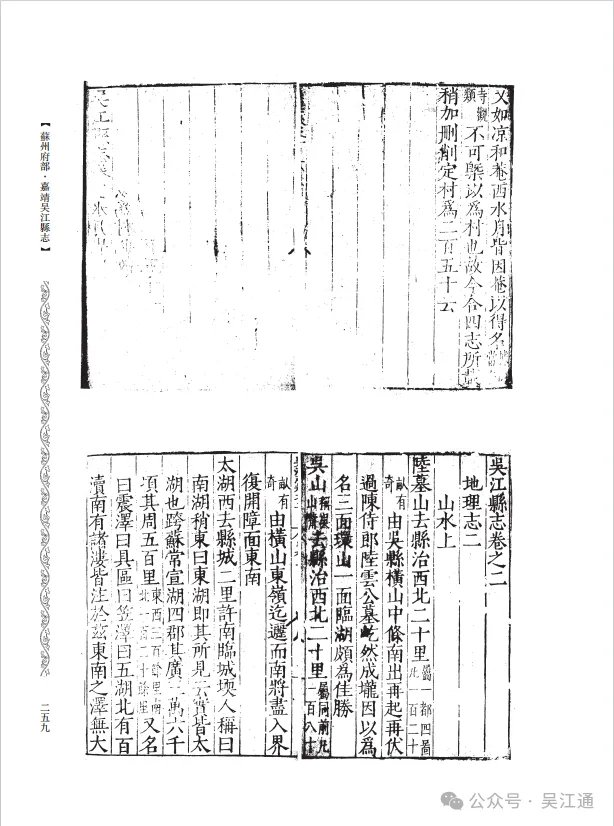 又如凉和菴西水月皆因菴以得名
寺觀
類不可槩以爲村也故今合四志所
稍加删削定村爲二百五十云
吳江縣志卷之二
地理志二
山水上
陸墓山去縣治西北二十里屬一都四啚凡一百二十
畝有奇由吳縣橫山中條南出再起再伏
過陳侍郎陸雲公墓屹然成壠因以爲
名三面環山一面臨湖頗爲佳勝
吳山去縣治西北二十里屬同前凡一百八十
畝有奇由橫山東嶺迄邐而南將盡入界
復開障面東南
太湖西去縣城二里許南臨城堧人稱曰
南湖稍東曰東湖即其所見云實皆太
湖也跨蘇常宣湖四郡其廣三萬六千
項其周五百里東西二百餘里南北一百二十餘里又名
曰震澤曰具區曰笠澤曰五湖北有百
瀆南有諸漊皆注於玆東南之澤無大
【蘇州府部·嘉靖吳江縣志】
二五九
公众号·吴江通